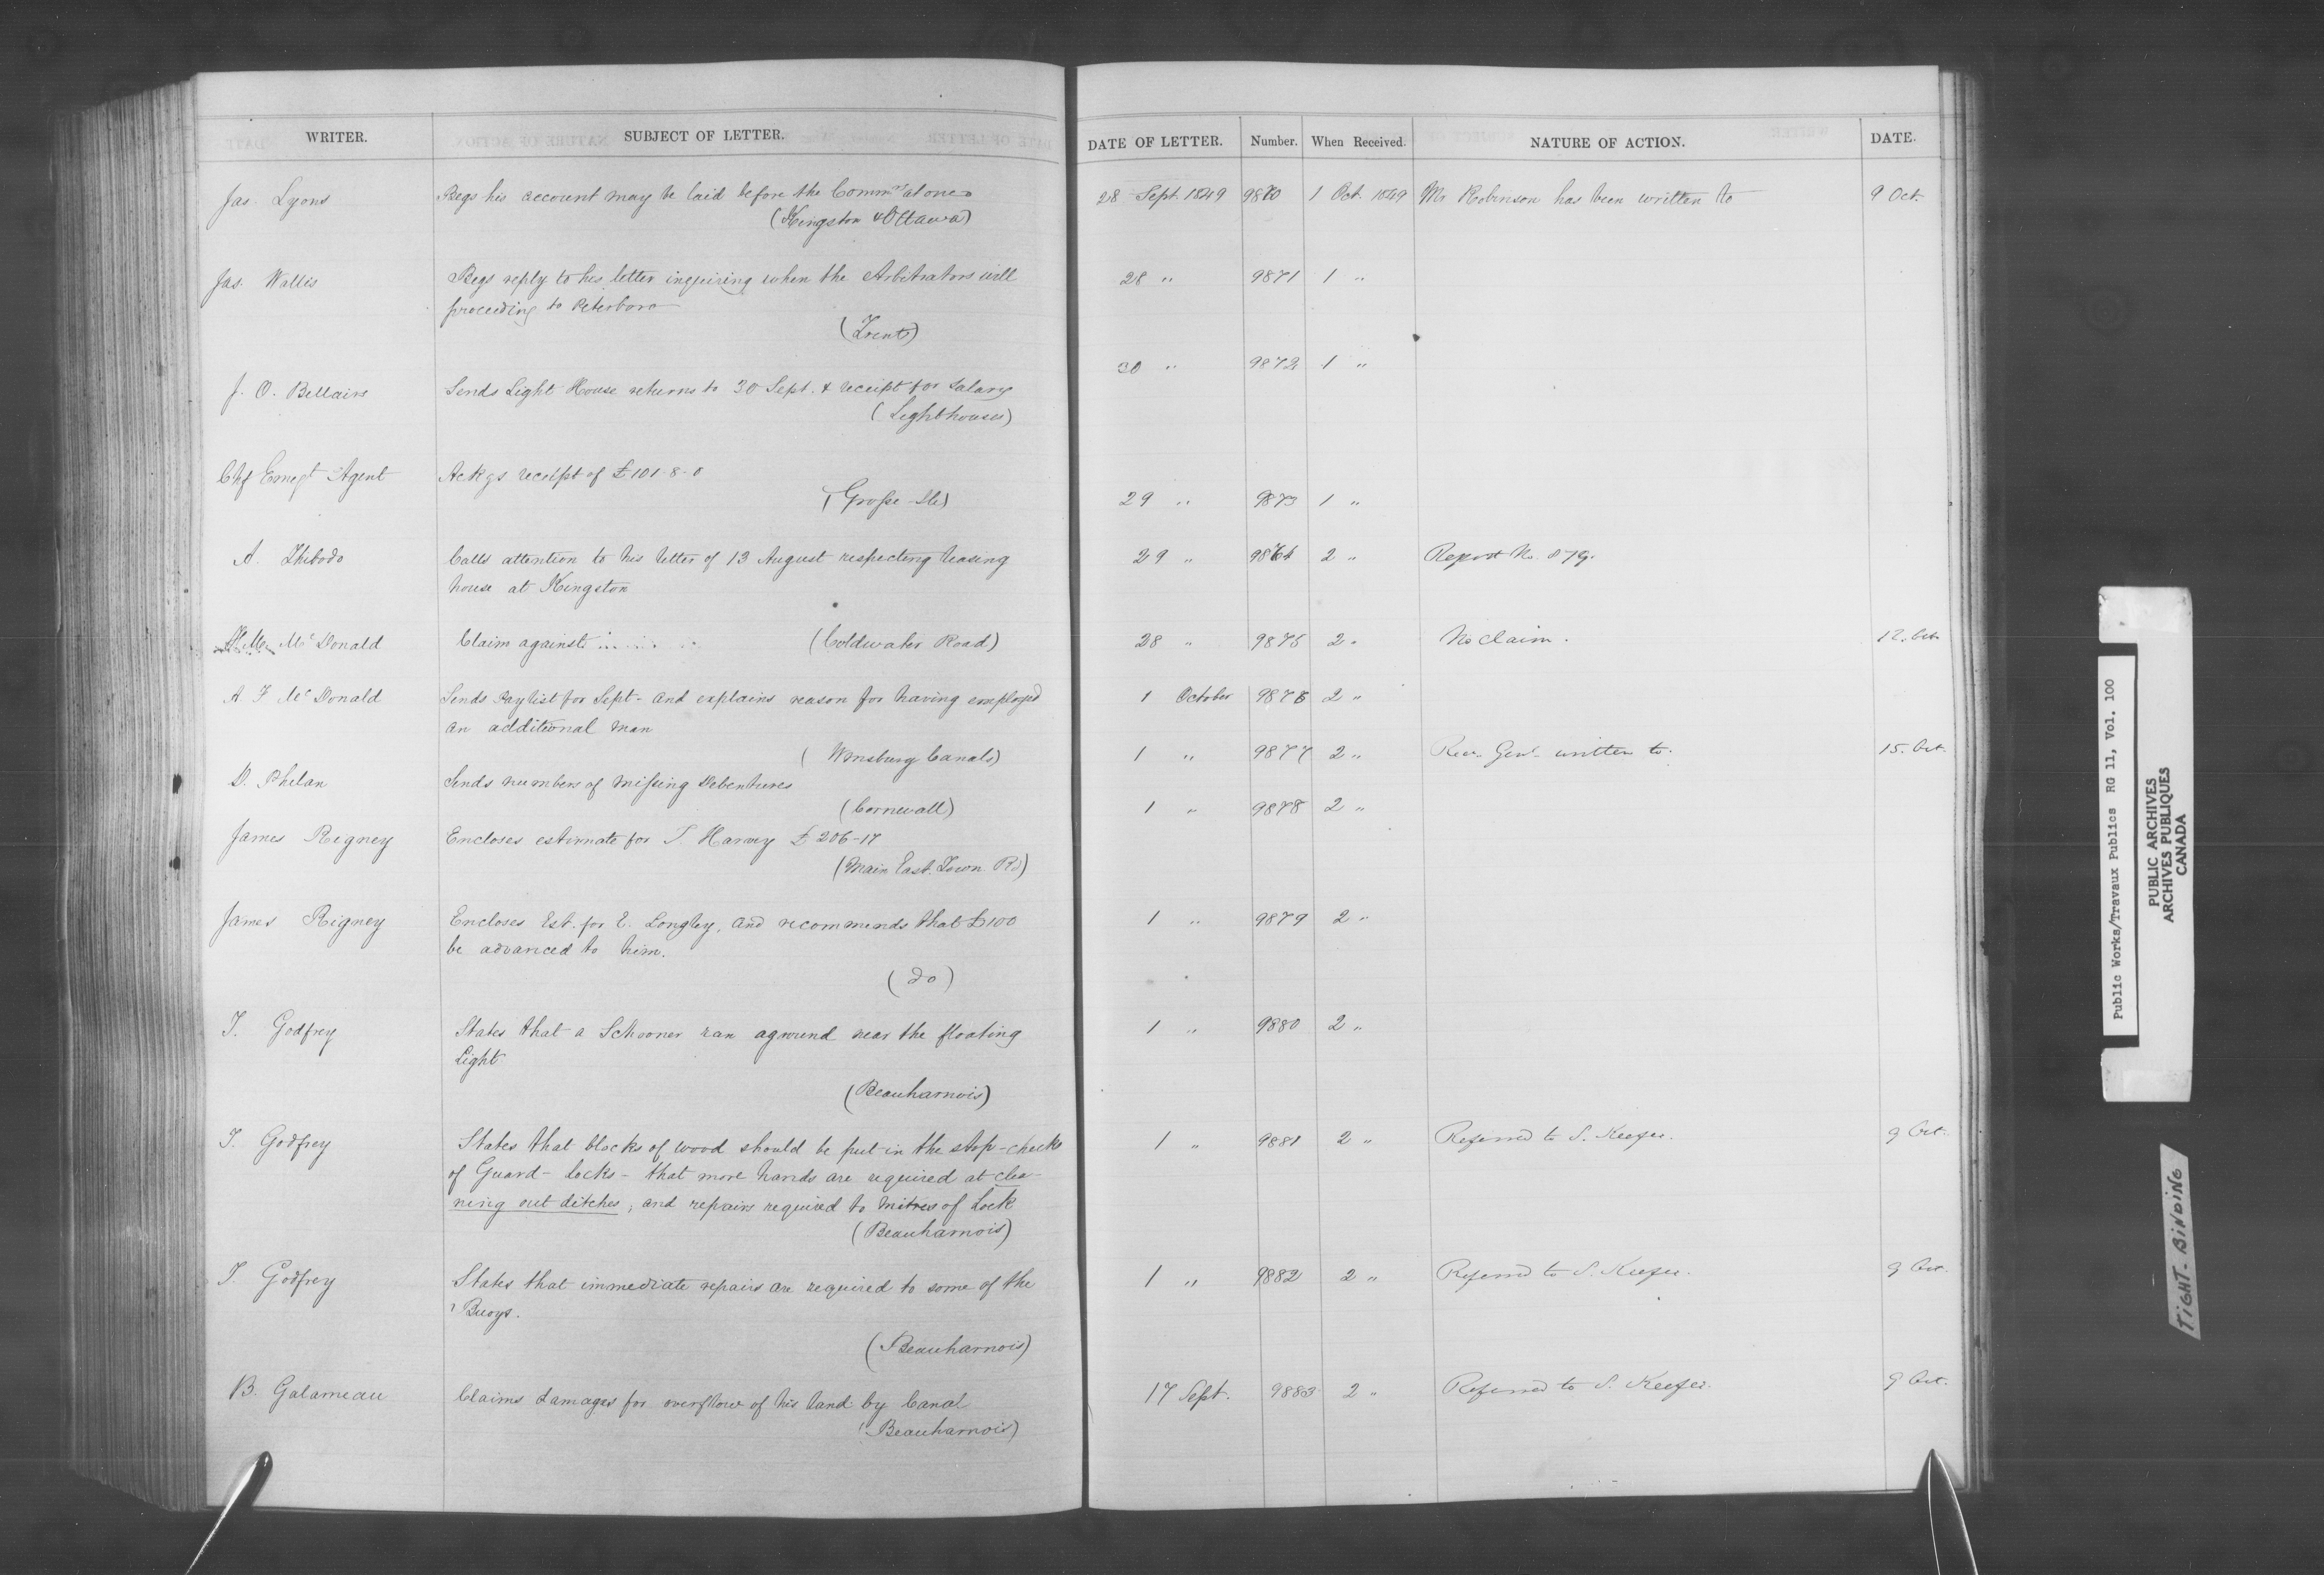 WRITER. SUBJECT OF LETTER. DATE OF LETTER. Number. When Received. NATURE OF ACTION. DATE.
Jas. Lyons Begs his account may be laid before the Commrs at once 28 Sept. 1849 9870 1 Oct. 1849 Mr Robinson has been written to 9 Oct.
(Kingston & Ottawa)
Jas. Wallis Begs reply to his letter inquiring when the Arbitrators will 28 " 9871 1 "
proceeding to Peterboro
(Trent)
J. O. Bellairs Sends Light House returns to 30 Sept. & receipt for Salary 30 " 9872 1 "
(Lighthouses)
Chf Emigt Agent Ackgs receipt of £101-8-0 29 " 9873 1 "
(Grosse-Ile)
A. Thibodo Calls attention to his letter of 13 August respecting leasing 29 " 9874 2 " Report No. 879.
house at Kingston
McDonald Claim against (Coldwater Road) 28 " 9875 2 " No claim. 12. Oct
A. F McDonald Sends Paylist for Sept- and explains reason for having employed 1 October 9876 2 "
an additional man
(Wmsburg Canals)
D. Phelan Sends numbers of missing Debentures 1 " 9877 2 " Rec. Genl. written to. 15. Oct.
(Cornwall)
James Rigney Encloses estimate for T. Harvey £206-17 1 " 9878 2 "
(Main East. Town. Rd)
James Rigney Encloses Est. for E. Longley, and recommends that £100 1 " 9879 2 "
be advanced to him.
(do)
T. Godfrey States that a Schooner ran aground near the floating 1 " 9880 2 "
Light
(Beauharnois)
T. Godfrey States that blocks of wood should be put in the stop-checks 1 " 9881 2 " Referred to S. Keefer. 9 Oct.
of Guard-locks - that more hands are required at clea-
ning out ditches, and repairs required to mitres of Lock
(Beauharnois)
T. Godfrey States that immediate repairs are required to some of the 1 " 9882 2 " Referred to S. Keefer. 9 Oct.
Buoys.
(Beauharnois)
B. Galarneau Claims damages for overflow of his land by Canal 17 Sept. 9883 2 " Referred to S. Keefer. 9 Oct.
(Beauharnois)
Public Works/Travaux Publics RG 11, Vol. 100
PUBLIC ARCHIVES
ARCHIVES PUBLIQUES
CANADA
TIGHT-BINDING